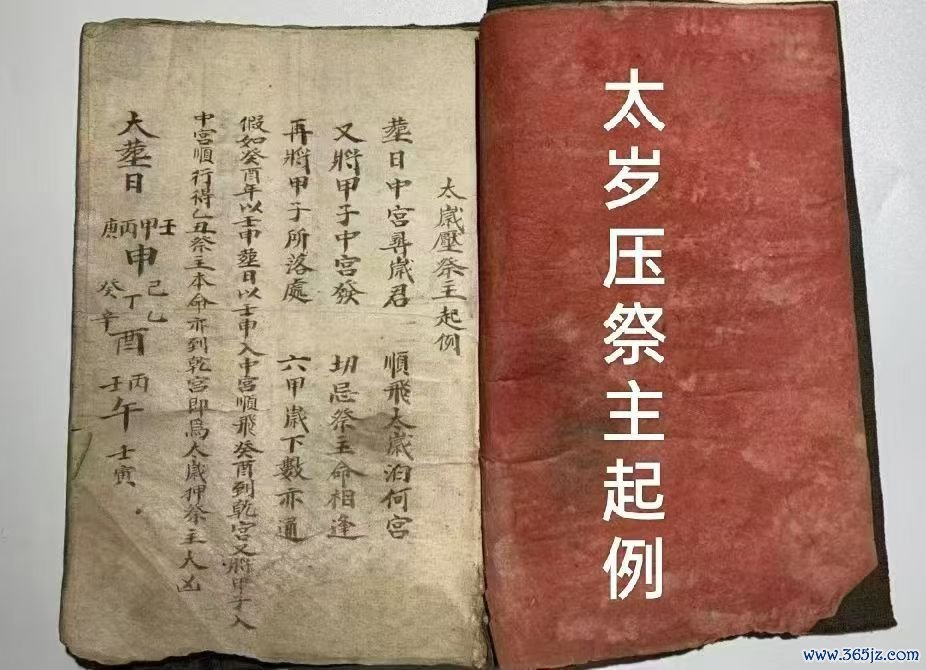 太岁压祭主起例
太歲壓祭主起例
塟日中宮尋歲君 順飛太歲泊何宮
又將甲子中宮發 切忌祭主命相逢
再將甲子所落處 六甲歲下數亦通
假如癸酉年以壬申塟日以壬申入中宮順飛癸酉到乾宮又將甲子入
中宮順行得乙丑祭主本命亦到乾宮即爲太歲押祭主大凶
大塟日 壬甲丙庚申 己乙丁癸辛酉 丙壬午 壬寅
www.365jz.com